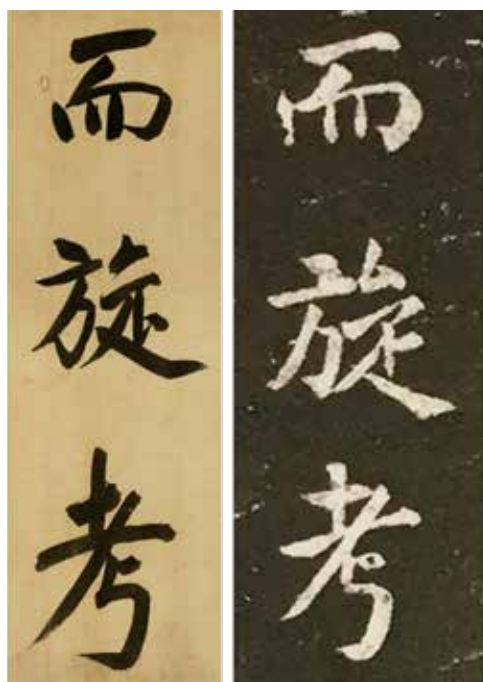 而旋考
而旋考